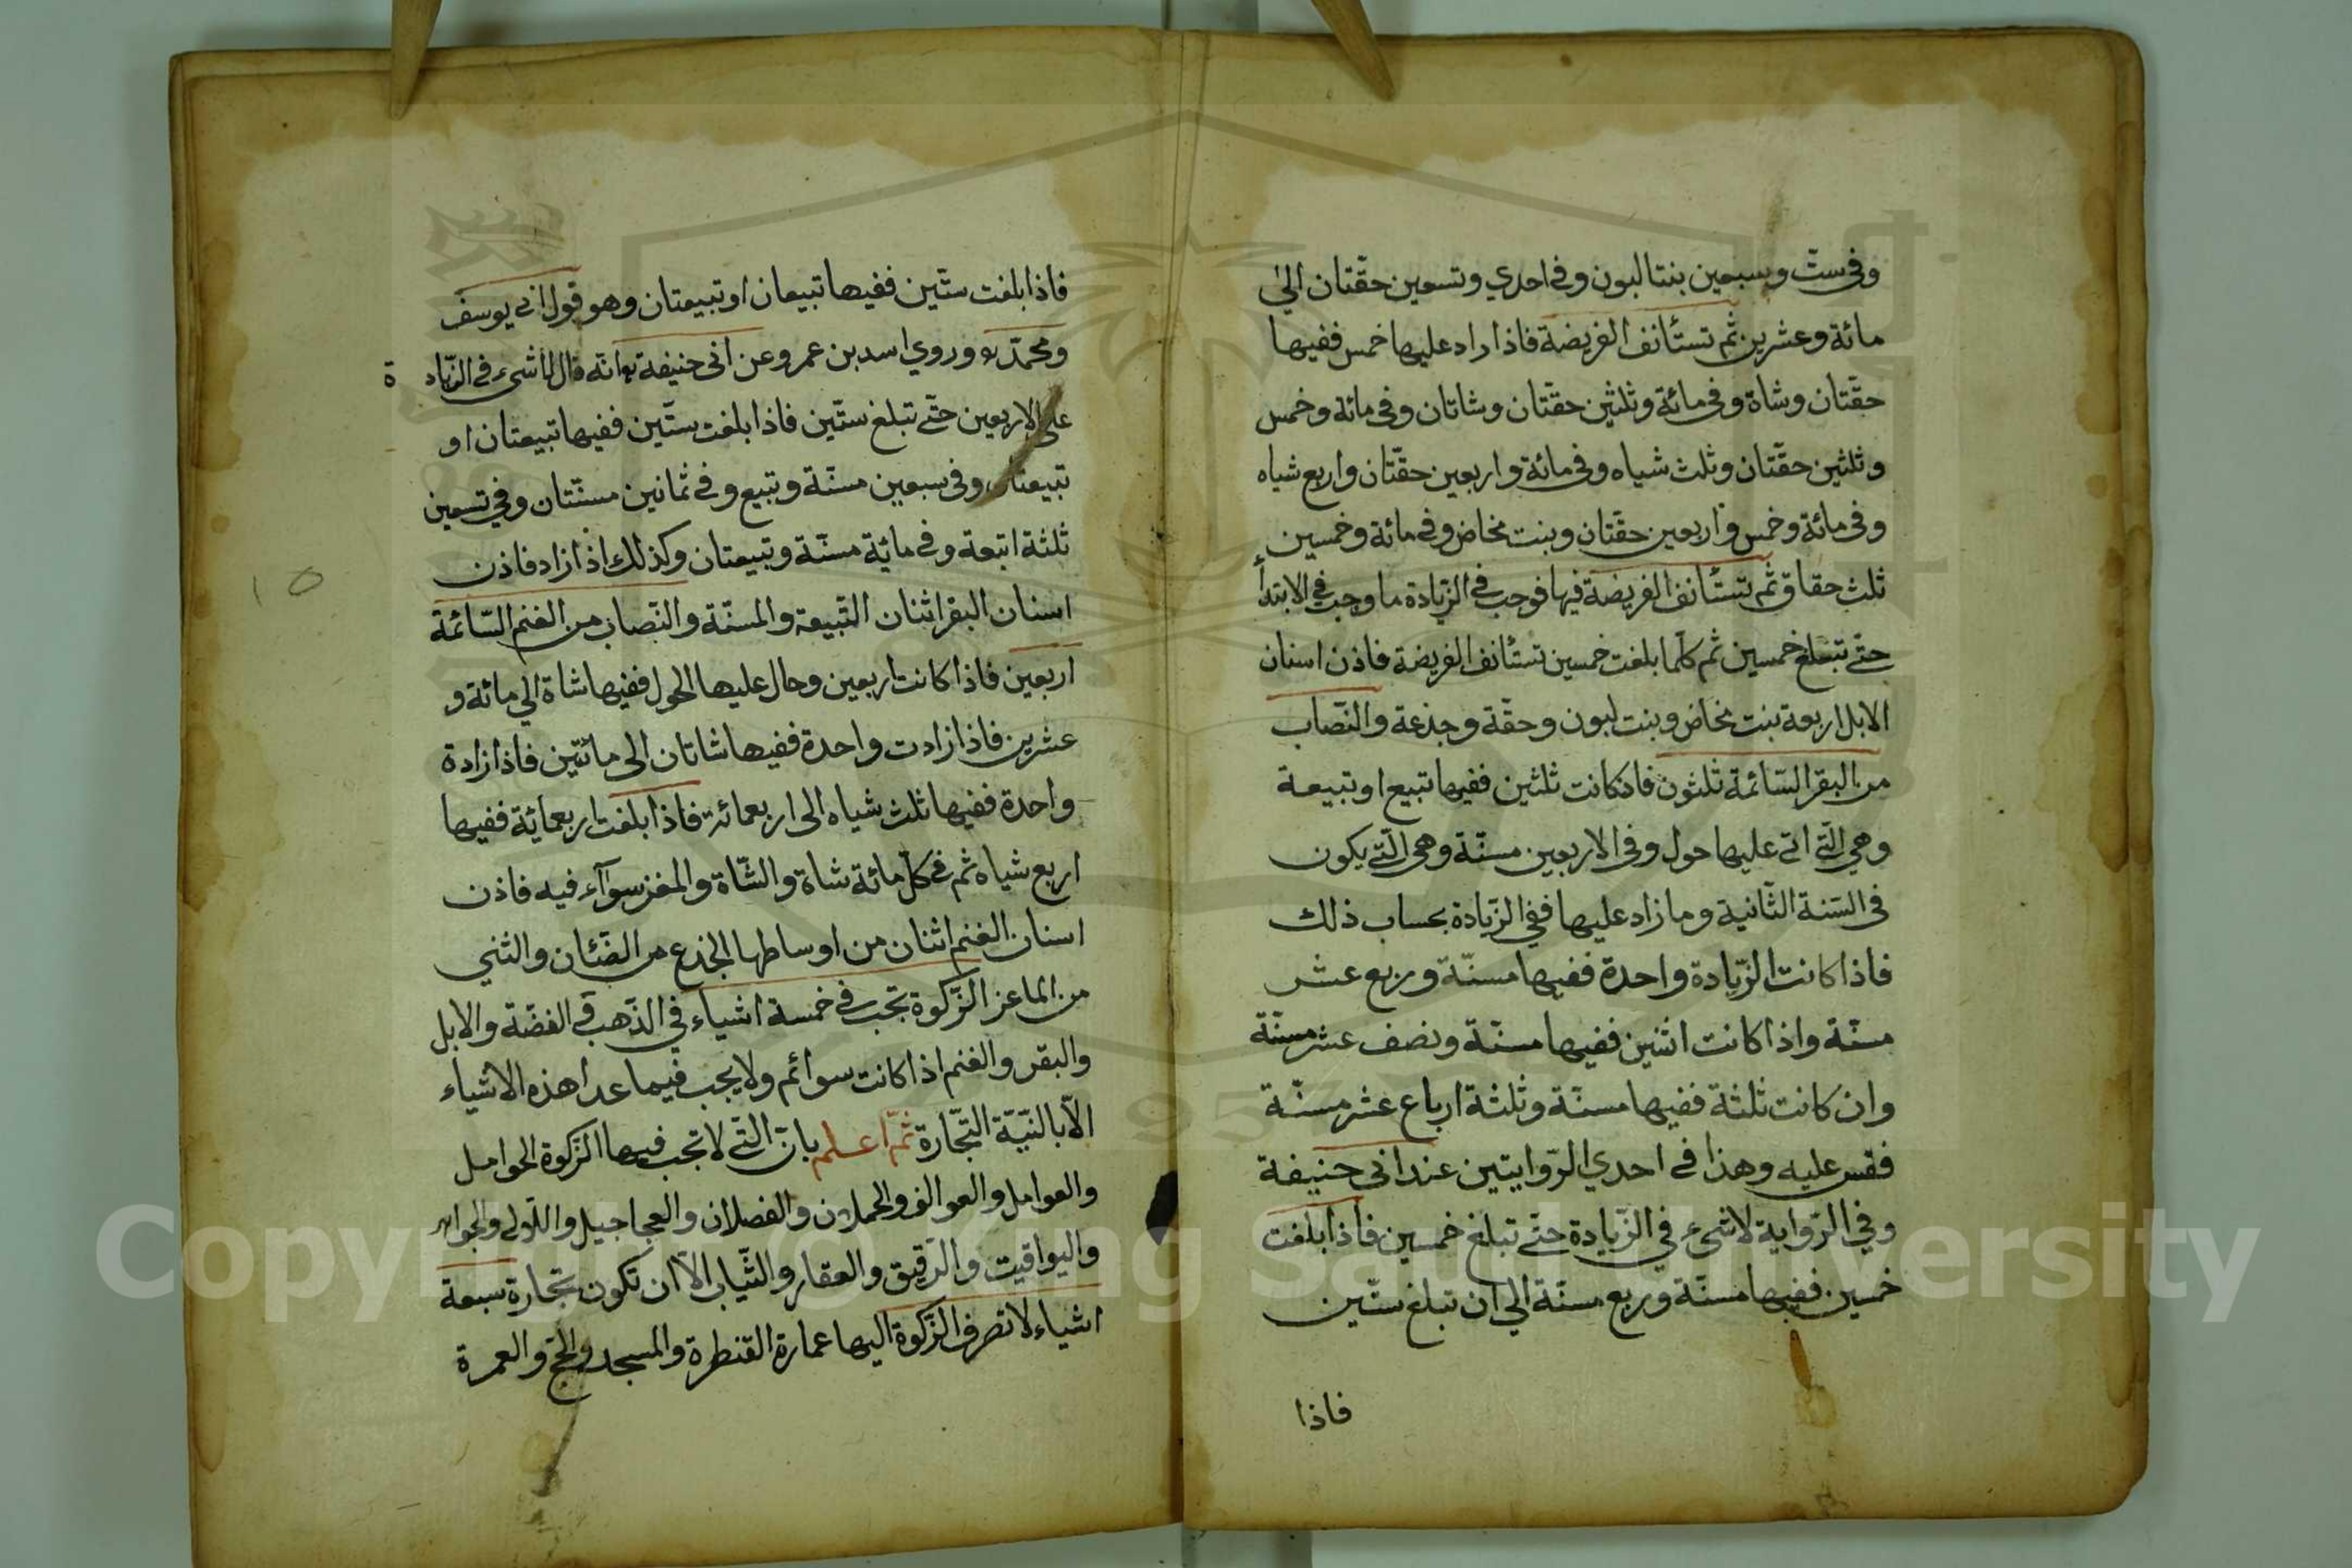 وفي ستّ وسبعين بنتا لبون وفي احدي وتسعين حقّتان الي
مائة وعشرين ثم تستأنف الفريضة فاذا زاد عليها خمس ففيها
حقّتان وشاة وفي مائة وثلثين حقّتان وشاتان وفي مائة وخمس
وثلثين حقّتان وثلث شياه وفي مائة واربعين حقّتان واربع شياه
وفي مائة وخمس واربعين حقّتان وبنت مخاض وفي مائة وخمسين
ثلث حقاق ثم تستأنف الفريضة فيها فوجب في الزّيادة ما وجب في الابتدأ
حتّي تبلغ خمسين ثم كلّما بلغت خمسين تستأنف الفريضة فاذن اسنان
الابل اربعة بنت مخاض وبنت لبون وحقّة وجذعة والنّصاب
من البقر السّائمة ثلثون فاذ كانت ثلثين ففيها تبيع او تبيعة
وهي الّتي اتي عليها حول وفي الاربعين مسنّة وهي الّتي يكون
في السّنة الثّانية وما زاد عليها ففي الزّيادة بحساب ذلك
فاذا كانت الزّيادة واحدة ففيها مسنّة وربع عشر
مسنّة واذا كانت اثنين ففيها مسنّة ونصف عشر مسنّة
وان كانت ثلثة ففيها مسنّة وثلثة ارباع عشر مسنّة
فقس عليه وهذا في احدي الرّوايتين عند ابي حنيفة
وفي الرّواية لا شيء في الزّيادة حتّي تبلغ خمسين فاذا بلغت
خمسين ففيها مسنّة وربع مسنّة الي ان تبلغ ستّين
فاذا
فاذا بلغت ستّين ففيها تبيعان او تبيعتان وهو قول ابي يوسف
ومحمّد وروي اسد بن عمرو عن ابي حنيفة انّه قال لا شيء في الزّيادة
علي الاربعين حتّي تبلغ ستّين فاذا بلغت ستّين ففيها تبيعتان او
تبيعتان وفي سبعين مسنّة وتبيع وفي ثمانين مسنّتان وفي تسعين
ثلثة اتبعة وفي مائة مسنّة وتبيعتان وكذلك اذا زاد فاذن
اسنان البقر اثنان التّبيعة والمسنّة والنّصاب من الغنم السّائمة
اربعين فاذا كانت اربعين وحال عليها الحول ففيها شاة الي مائة و
عشرين فاذا زادت واحدة ففيها شاتان الي مائتين فاذا زادة
واحدة ففيها ثلث شياه الي اربعمائة فاذا بلغت اربعمائة ففيها
اربع شياه ثم في كلّ مائة شاة والشّاة والمغز سوآء فيه فاذن
اسنان الغنم اثنان من اوساطها الجذع من الضّئان والثني
من الماعز الزّكوة تجب في خمسة اشياء في الذّهب في الفضّة والابل
والبقر والغنم اذا كانت سوائم ولا يجب فيما عدا هذه الاشياء
الّا بالنّيّة التّجارة ثمّ اعلم بانّ الّتي لا تجب فيها الزّكوة الحوامل
والعوامل والعوالف والحملان والفصلان والعجاجيل واللّالي والجواهر
واليواقيت والرّقيق والعقار والثّياب الّا ان تكون تجارة سبعة
اشياء لا تصرف الزّكوة اليها عمارة القنطرة والمسجد والحجّ والعمرة
١٥
Copyright © King Saud University